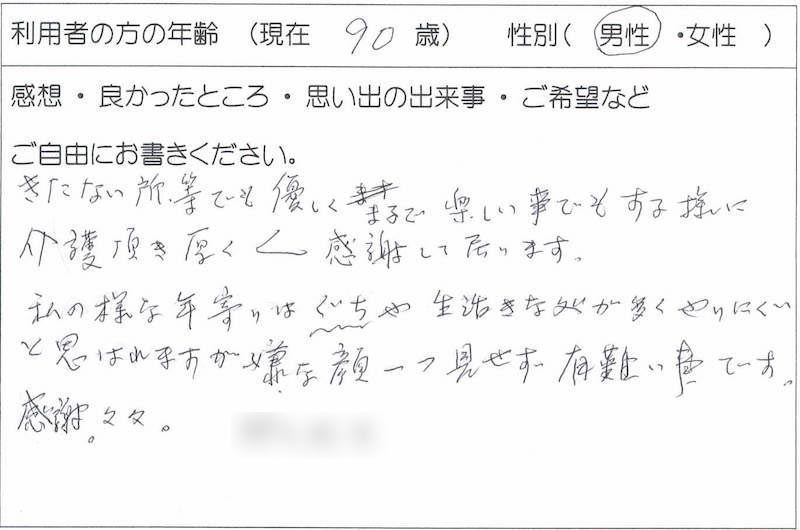 利用者の方の年齢 (現在 90 歳) 性別( 男性 ・女性 )
感想・良かったところ・思い出の出来事・ご希望など
ご自由にお書きください。
きたない所等でも優しく まるで楽しい事でもする様に
介護頂き厚く〱感謝して居ります。
私の様な年寄りはぐちや 生活きな が多くやりにくい
と思はれますが嫌な顔一つ見せず有難い事です。
感謝。々々。